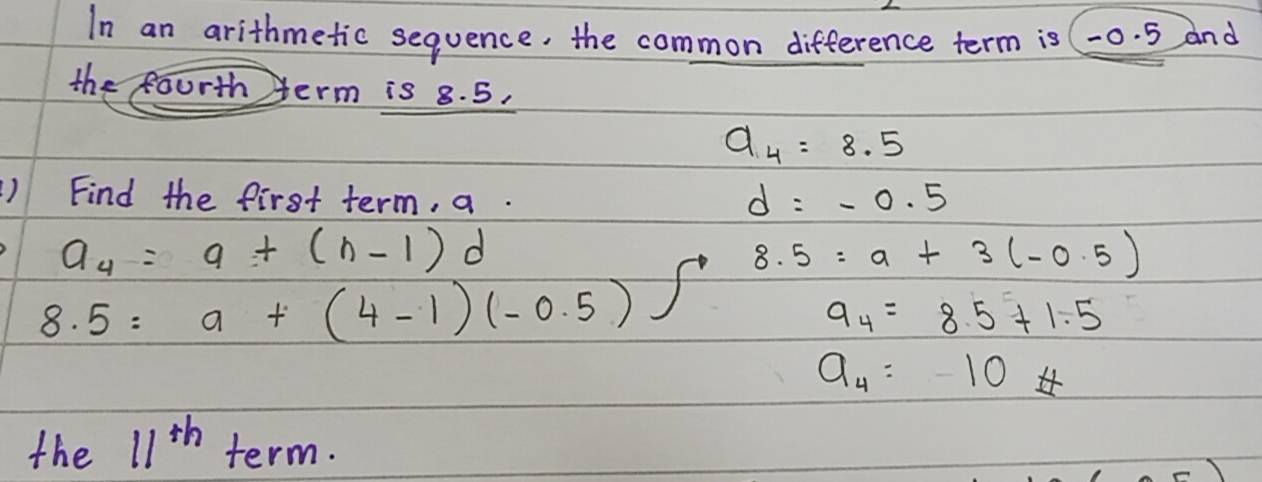 In an arithmetic sequence, the common difference term is -0.5 and
the fourth term is 8.5,
a₄ = 8.5
) Find the first term, a .
d = -0.5
a₄ = a + (n-1)d
8.5 = a + 3(-0.5)
8.5 = a + (4-1)(-0.5)
a₄ = 8.5 + 1.5
a₄ = 10 #
the 11th term.